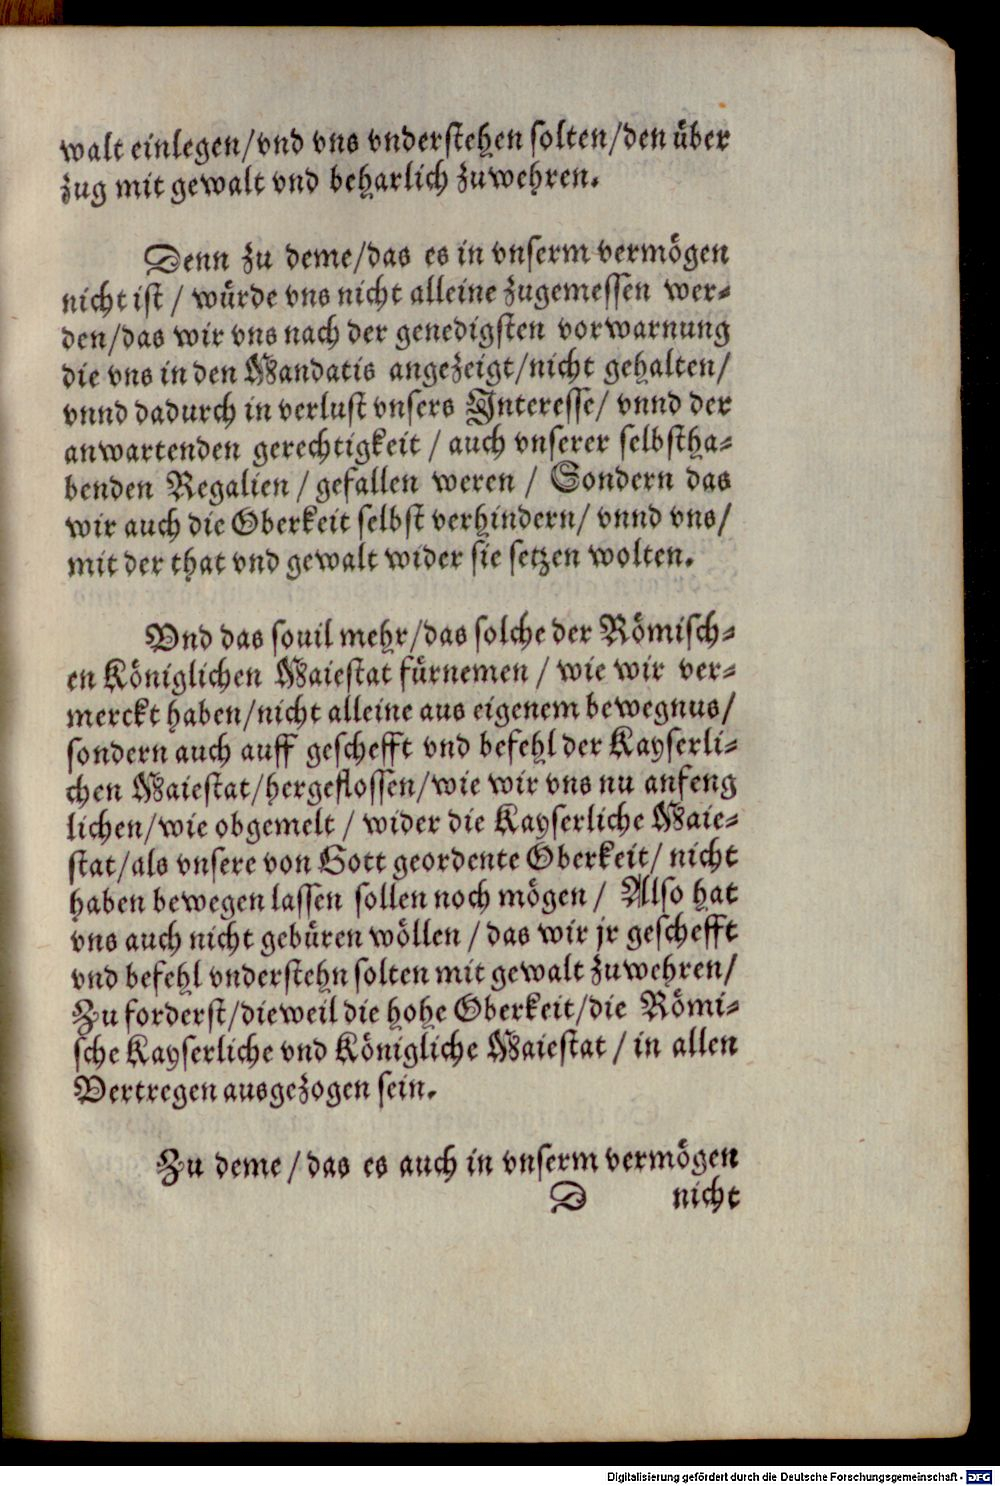 walt einlegen/vnd vns vnderstehen solten/den über
zug mit gewalt vnd beharlich zuwehren.
Denn zu deme/das es in vnserm vermögen
nicht ist / würde vns nicht alleine zugemessen wer-
den/das wir vns nach der genedigsten vorwarnung
die vns in den Mandatis angezeigt/nicht gehalten/
vnnd dadurch in verlust vnsers Interesse/ vnnd der
anwartenden gerechtigkeit / auch vnserer selbstha-
benden Regalien / gefallen weren / Sondern das
wir auch die Oberkeit selbst verhindern/ vnnd vns/
mit der that vnd gewalt wider sie setzen wolten.
Vnd das souil mehr/das solche der Römisch-
en Königlichen Maiestat fürnemen / wie wir ver-
merckt haben/nicht alleine aus eigenem bewegnus/
sondern auch auff geschefft vnd befehl der Kayserli-
chen Maiestat/hergeflossen/wie wir vns nu anfeng
lichen/wie obgemelt / wider die Kayserliche Maie-
stat/als vnsere von Gott geordente Oberkeit/ nicht
haben bewegen lassen sollen noch mögen / Also hat
vns auch nicht gebüren wöllen / das wir jr geschefft
vnd befehl vnderstehn solten mit gewalt zuwehren/
Zu forderst/dieweil die hohe Oberkeit/die Römi-
sche Kayserliche vnd Königliche Maiestat / in allen
Vertregen ausgezogen sein.
Zu deme / das es auch in vnserm vermögen
D nicht
Digitalisierung gefördert durch die Deutsche Forschungsgemeinschaft - DFG